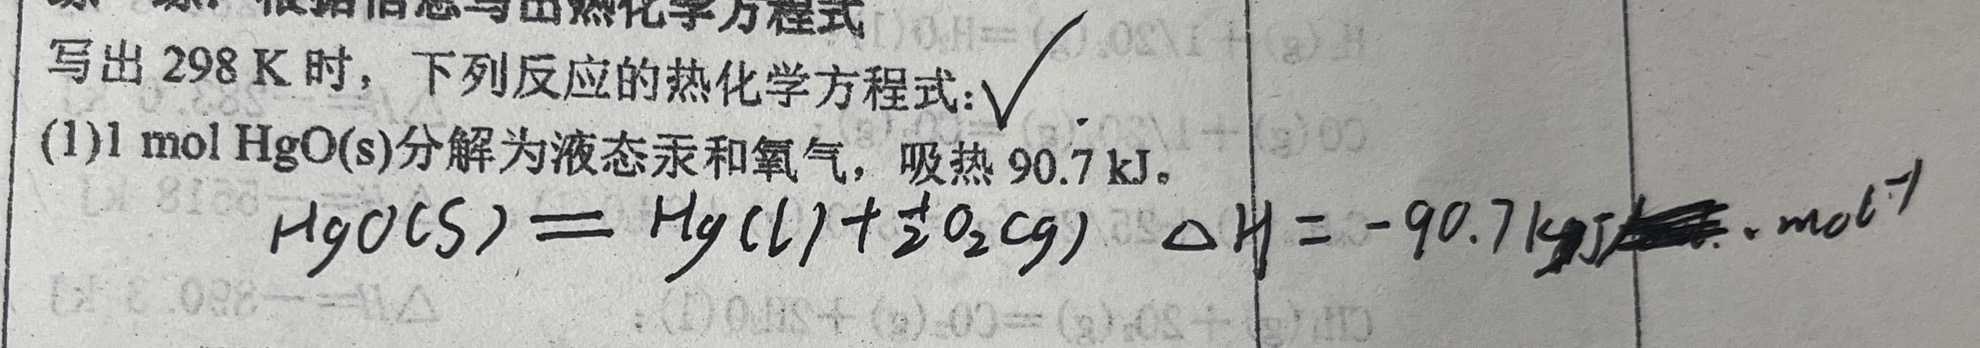 练一练：根据信息写出热化学方程式
写出 298 K 时，下列反应的热化学方程式:
(1)1 mol HgO(s)分解为液态汞和氧气，吸热 90.7 kJ。
HgO(s) = Hg(l) + 1/2 O₂(g) △H = -90.7 kJ · mol⁻¹